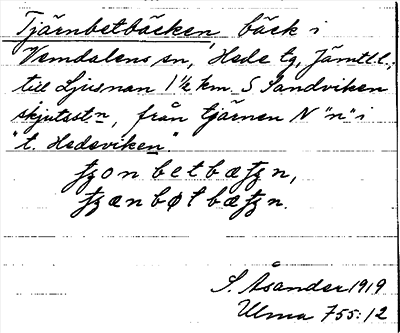 Tjärnbetbäcken, bäck i
Vemdalens sn, Hede tg, Jämtl. l.;
till Ljusnan 1½ km S Sandviken
skjutst:n, från tjärnen N "n" i
"t. Hedeviken".
S. Åsander 1919
Ulma 755:12